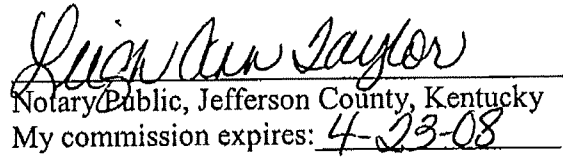 Leigh Ann Taylor
Notary Public, Jefferson County, Kentucky
My commission expires: 4-23-08